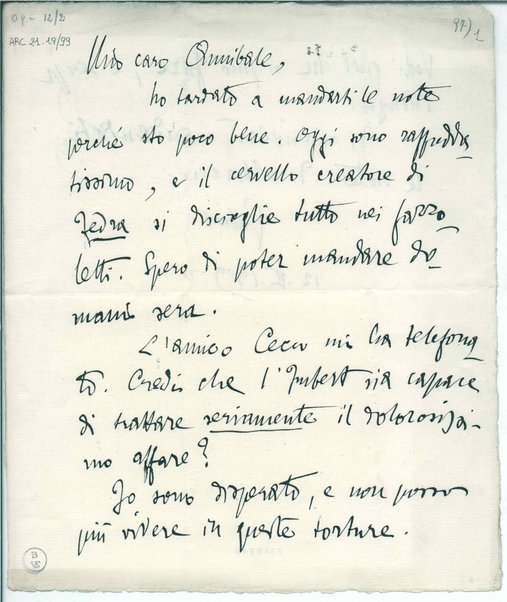 09-12/2
ARC 21.19/99
97) 1
Mio caro Annibale,
ho tardato a mandarti le note
perché sto poco bene. Oggi sono raffredda
tissimo, e il cervello creatore di
Fedra si discioglie tutto nei fazzo
letti. Spero di poter mandare do-
mani sera.
L'amico Cecco mi ha telefona
to. Credi che l'Hubert sia capace
di trattare seriamente il dolorosissi-
mo affare?
Io sono disperato, e non posso
più vivere in queste torture.
B
VE